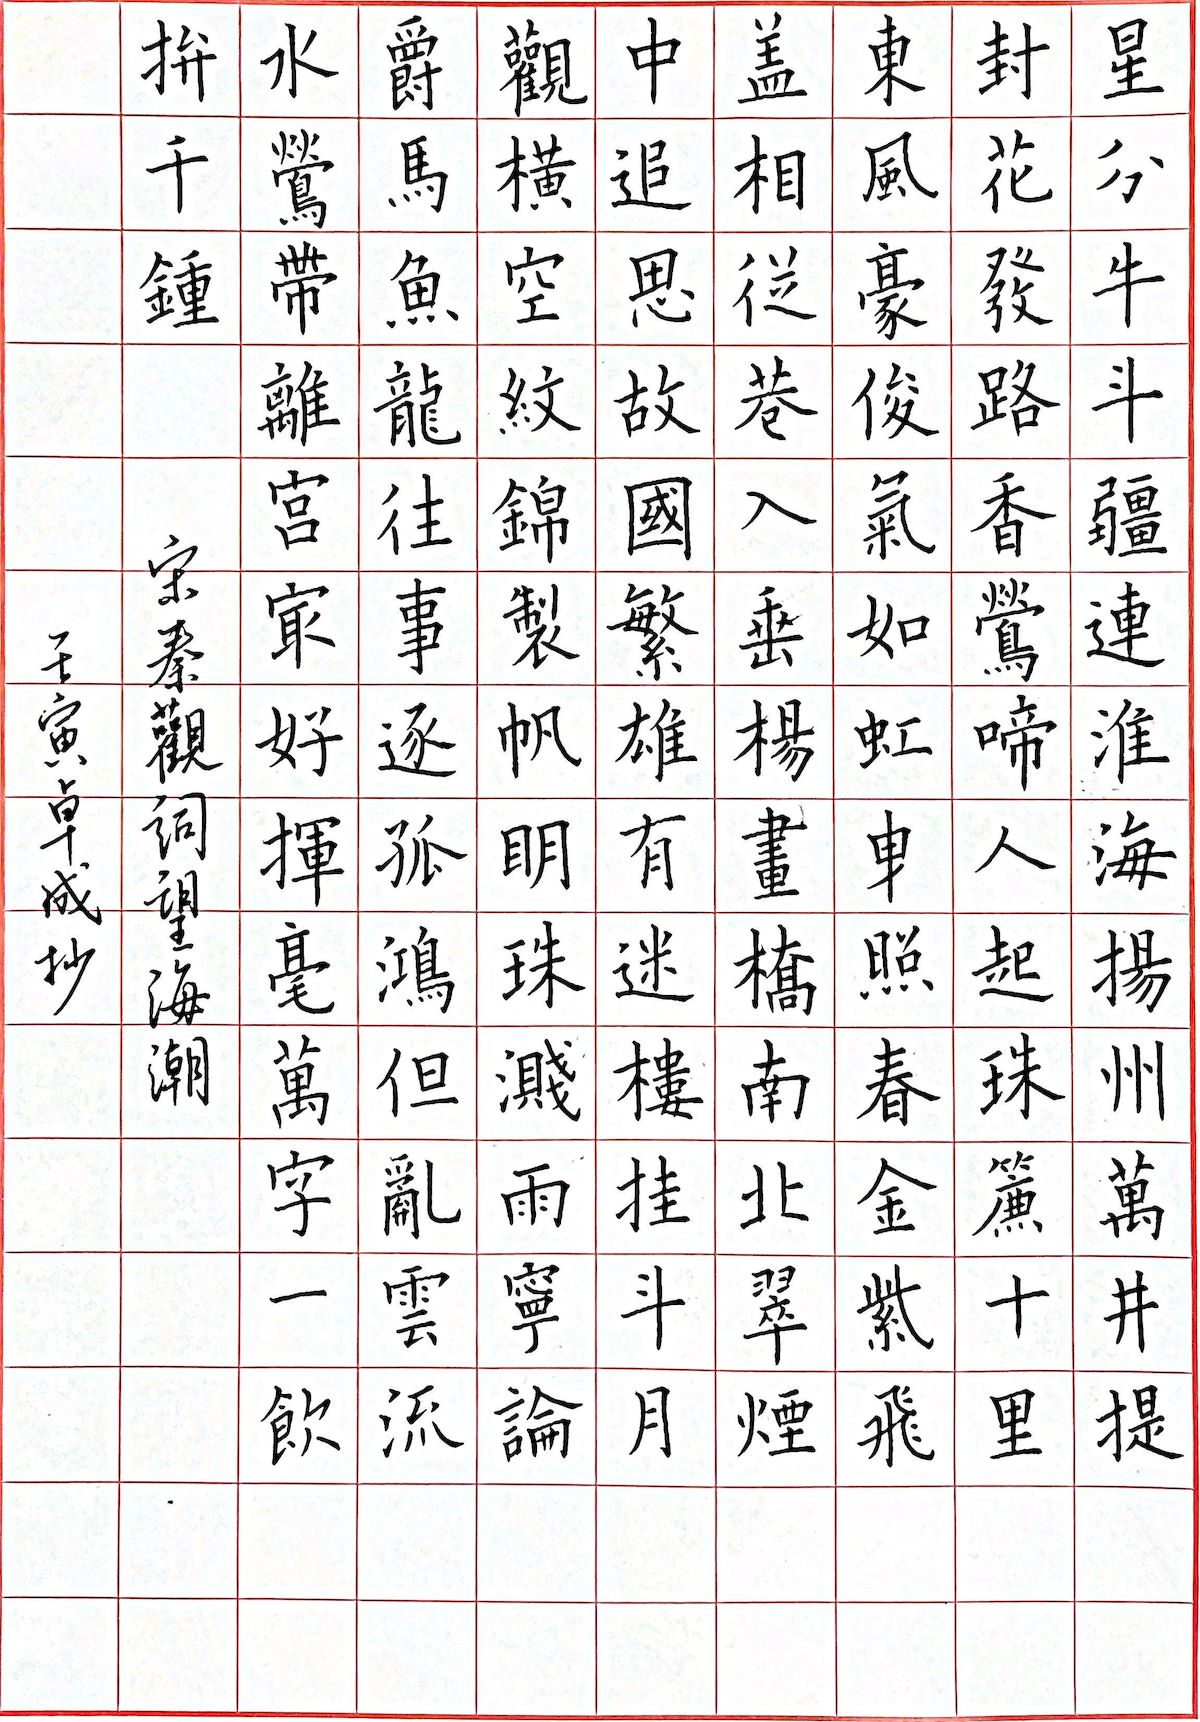 星分牛斗疆連淮海揚州萬井提
封花發路香鶯啼人起珠簾十里
東風豪俊氣如虹曳照春金紫飛
蓋相從巷入垂楊畫橋南北翠煙
中追思故國繁雄有迷樓挂斗月
觀橫空紋錦製帆明珠濺雨寧論
爵馬魚龍往事逐孤鴻但亂雲流
水縈帶離宮最好揮毫萬字一飲
拚千鍾
宋秦觀詞望海潮
壬寅卓成抄